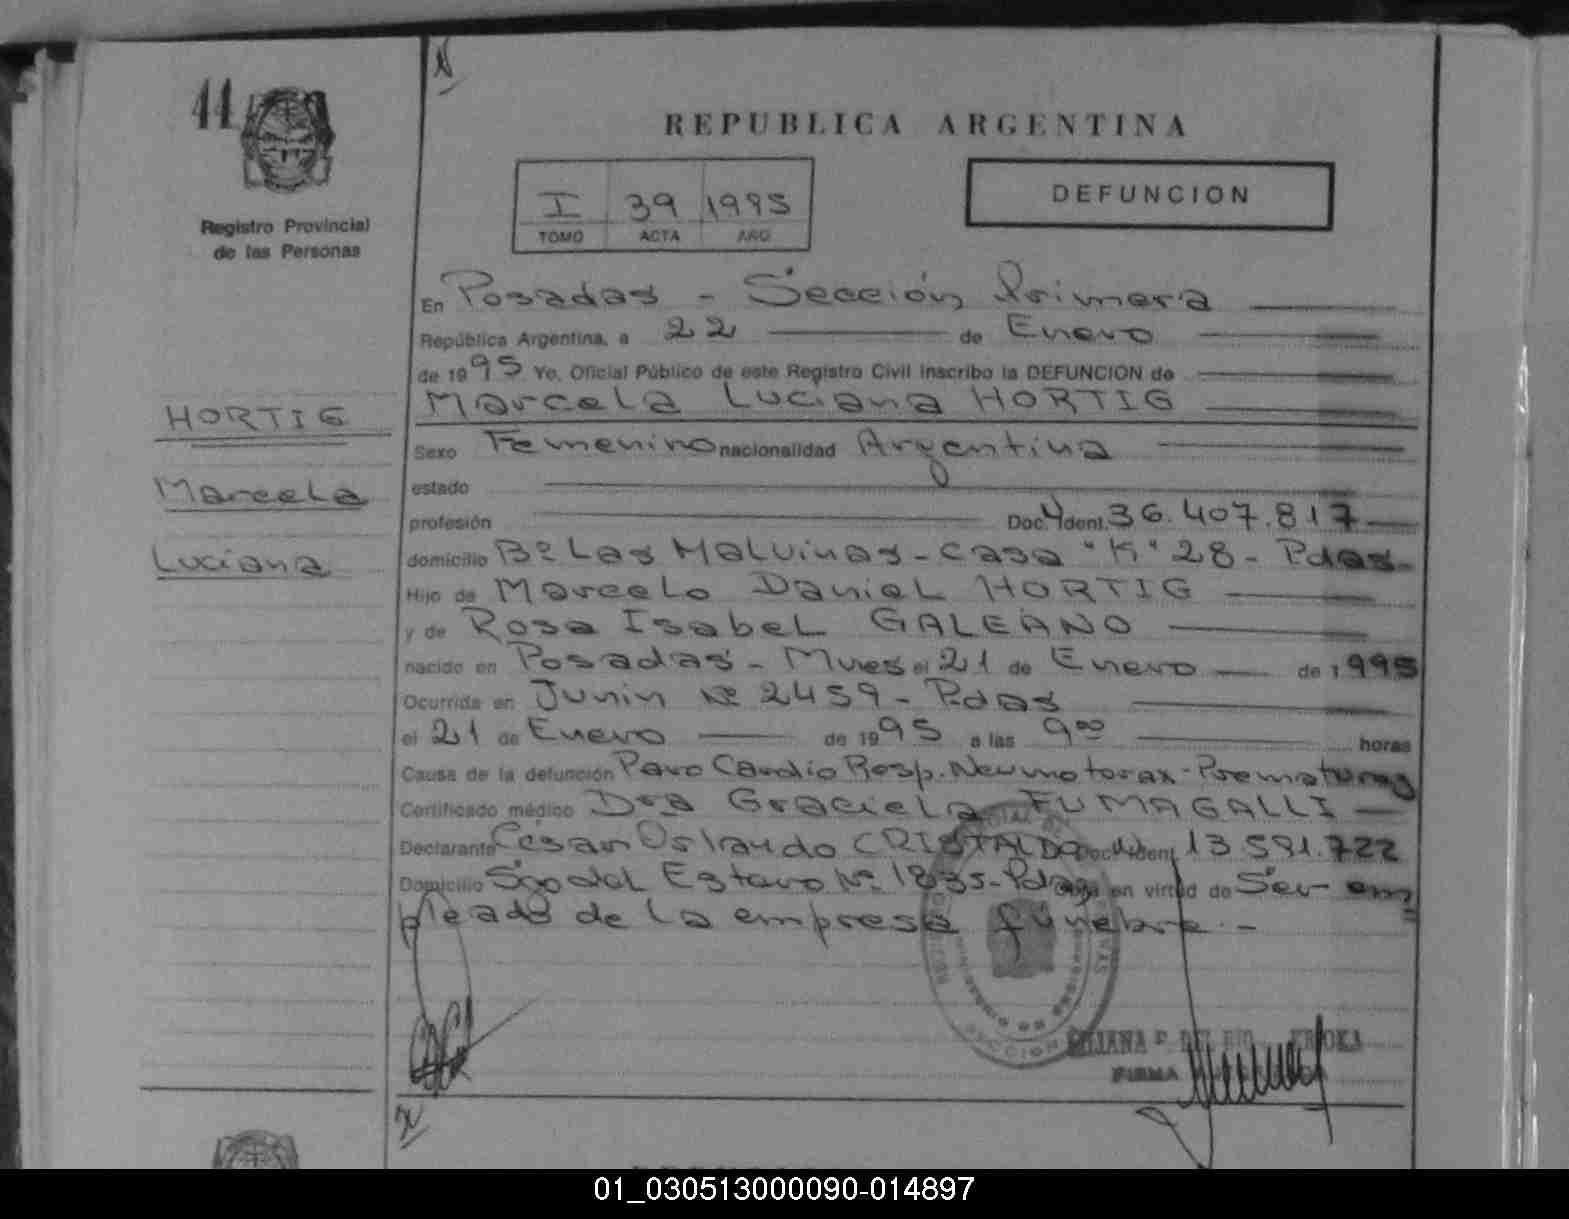 11
N
REPUBLICA ARGENTINA
I 39 1995
TOMO ACTA AÑO
DEFUNCION
Registro Provincial
de las Personas
HORTIG
Marcela
Luciana
En Posadas - Sección Primera
República Argentina, a 22 de Enero
de 1995 Yo, Oficial Público de este Registro Civil inscribo la DEFUNCION de
Marcela Luciana HORTIG
Sexo Femenino nacionalidad Argentina
estado
profesión Doc. Ident. 36.407.817
domicilio Bº Las Malvinas - Casa "K" 28 - Pdas.
Hijo de Marcelo Daniel HORTIG
y de Rosa Isabel GALEANO
nacido en Posadas - Mnes el 21 de Enero de 1995
Ocurrida en Junin Nº 2459 - Pdas
el 21 de Enero de 1995 a las 900 horas
Causa de la defunción Paro Cardio Resp. Neumotorax - Prematurez
Certificado médico Dra Graciela FUMAGALLI
Declarante César Orlando CRISTALDO Doc. Ident. 13.591.722
Domicilio Sgo del Estero Nº 1835 - Pdas en virtud de Ser em
pleado de la empresa fúnebre. -
DEL RIO
FIRMA
01_030513000090-014897